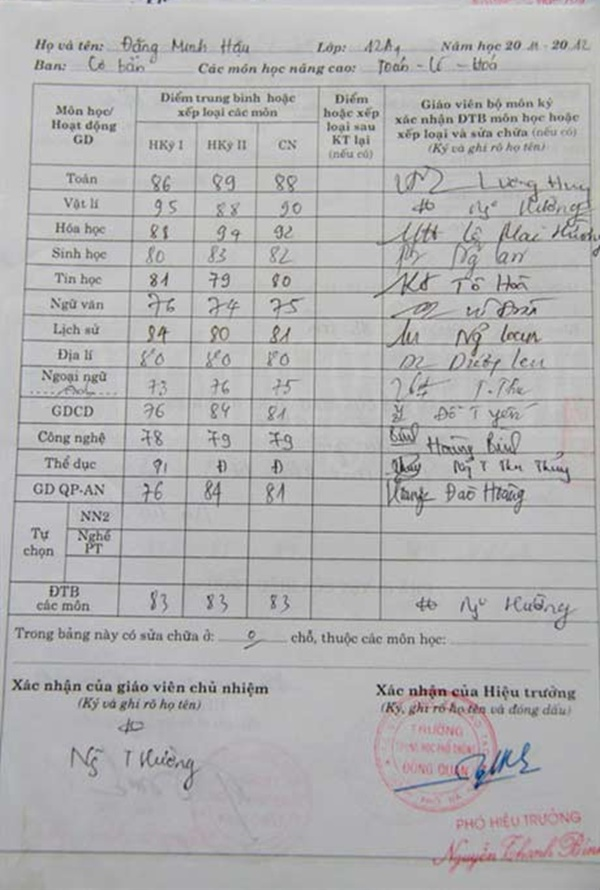 Họ và tên: Đặng Minh Hậu Lớp: 12A1 Năm học 2011 - 2012
Ban: Cơ bản Các môn học nâng cao: Toán - Lí - Hoá
Môn học/ Hoạt động GD
Điểm trung bình hoặc xếp loại các môn
HKỳ I HKỳ II CN
Điểm hoặc xếp loại sau KT lại (nếu có)
Giáo viên bộ môn ký xác nhận ĐTB môn học hoặc xếp loại và sửa chữa (nếu có)
(Ký và ghi rõ họ tên)
Toán 86 89 88 Lương Huy
Vật lí 95 88 90 Ng̃ Hường
Hóa học 88 94 92 Lê Mai Hường
Sinh học 80 83 82 Ng̃ an
Tin học 81 79 80 Tô Hoà
Ngữ văn 76 74 75
Lịch sử 84 80 81 Ng̃ loan
Địa lí 80 80 80
Ngoại ngữ 73 76 75 T. Thu
GDCD 76 84 81 Đỗ T yến
Công nghệ 78 79 79 Hoàng Bình
Thể dục Đ Đ Ng̃ T Thu Thủy
GD QP-AN 76 84 81 Đào Hoàng
Tự chọn
NN2
Nghề PT
ĐTB các môn 83 83 83 Ng̃ Hường
Trong bảng này có sửa chữa ở: 0 chỗ, thuộc các môn học:
Xác nhận của giáo viên chủ nhiệm
(Ký và ghi rõ họ tên)
Ng̃ T Hường
Xác nhận của Hiệu trưởng
(Ký, ghi rõ họ tên và đóng dấu)
TRƯỜNG
TRUNG HỌC PHỔ THÔNG
ĐỒNG QUAN
PHÓ HIỆU TRƯỞNG
Nguyễn Thanh Bình